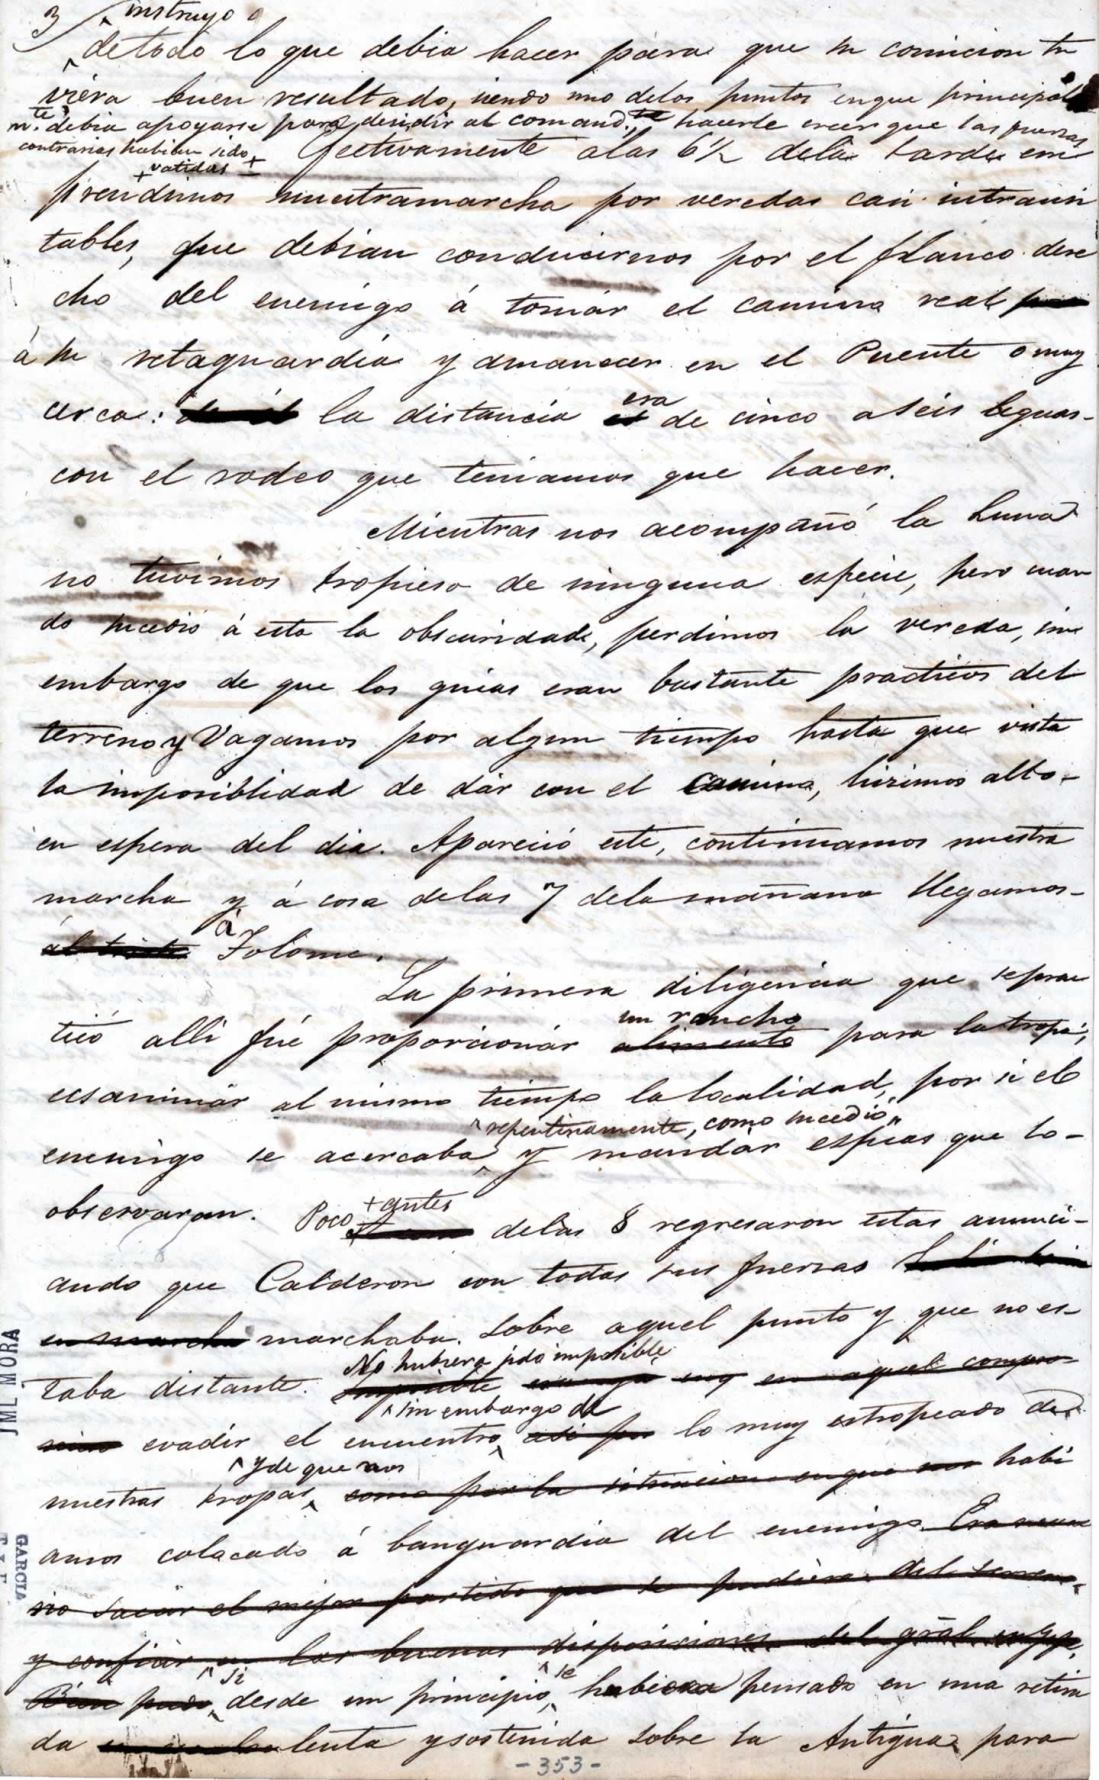 3 instruyo
de todo lo que debia hacer para que su comicion tu
viera buen resultado, siendo uno delos puntos enque principal
m.te debia apoyarse para desidir al comand.te hacerle creer que las fuerzas
contrarias habian sido
+ vatidas + Efectivamente alas 6½ dela tarde em
prendimos nuestramarcha por veredas casi intransi
tables, que debian conducirnos por el flanco dere
cho del enemigo á tomár el camino real por
á su retaguardia y amanecer en el Puente o muy
cerca: de él la distancia es era de cinco aseis leguas
con el rodeo que teniamos que hacer.
Mientras nos acompañó la Luna
no tuvimos tropieso de ninguna especie, pero cuan
do sucedió á esta la obscuridad, perdimos la vereda, sin
embargo de que los guias eran bastante practicos del
terreno y Vagamos por algun tiempo hasta que vista
la imposiblidad de dár con el camino, hizimos alto
en espera del dia. Apareció este, continuamos nuestra
marcha y á cosa delas 7 dela mañana llegamos
á Tolome.
La primera diligencia queseprac
un rancho
ticó alli fué proporcionár alimento para la tropa,
ecsaminár al mismo tiempo la localidad, por si el
repentinamente, como sucedió
enemigo se acercaba y mandar espias que lo
observaran. Poco + antes delas 8 regresaron estas anunci
ando que Calderon con todas sus fuerzas
en marcha marchaba sobre aquel punto y que no es
No hubiera sido imposible
taba distante. imposible era ya en aquel compro
sin embargo de
miso evadir el encuentro asi por lo muy estropeado de
y de que nos
nuestras tropas, como por la situacion enque nos habi
amos colacado á banguardia del enemigo. Era nesesa
rio sacár el mejor partido que se pudiera del terreno
y confiár en las buenas disposiciones del grâl en Gefe,
si se
Bien pudo desde un principio, hubiera pensado en una retira
da lenta ysostenida sobre la Antigua para
-353-
JML MORA
GARCIA